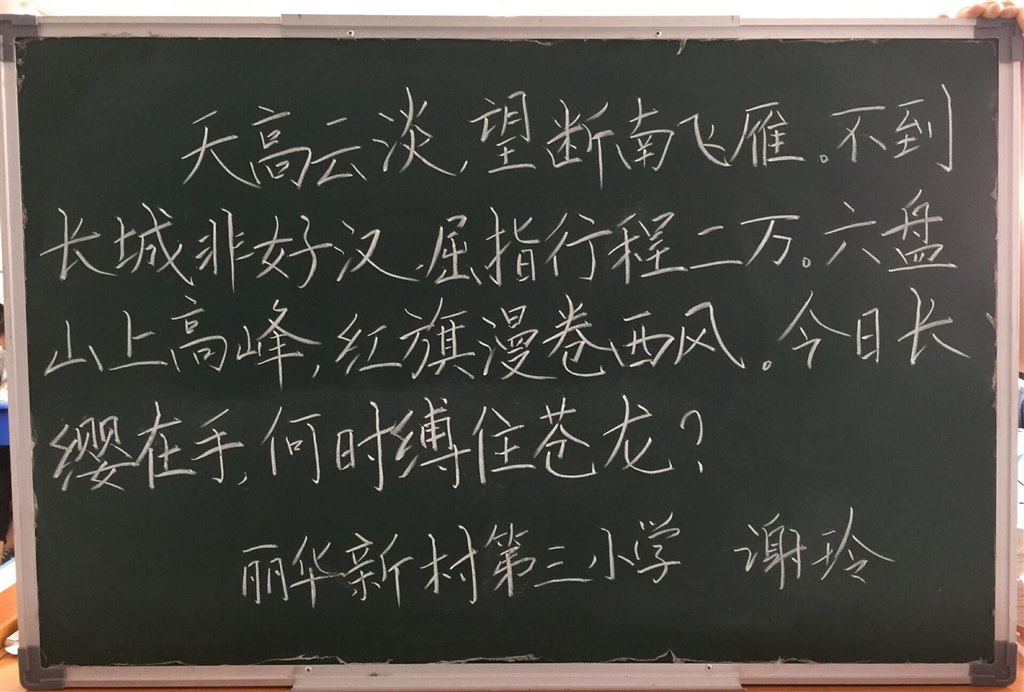 天高云淡,望断南飞雁。不到
长城非好汉,屈指行程二万。六盘
山上高峰,红旗漫卷西风。今日长
缨在手,何时缚住苍龙?
丽华新村第三小学 谢玲